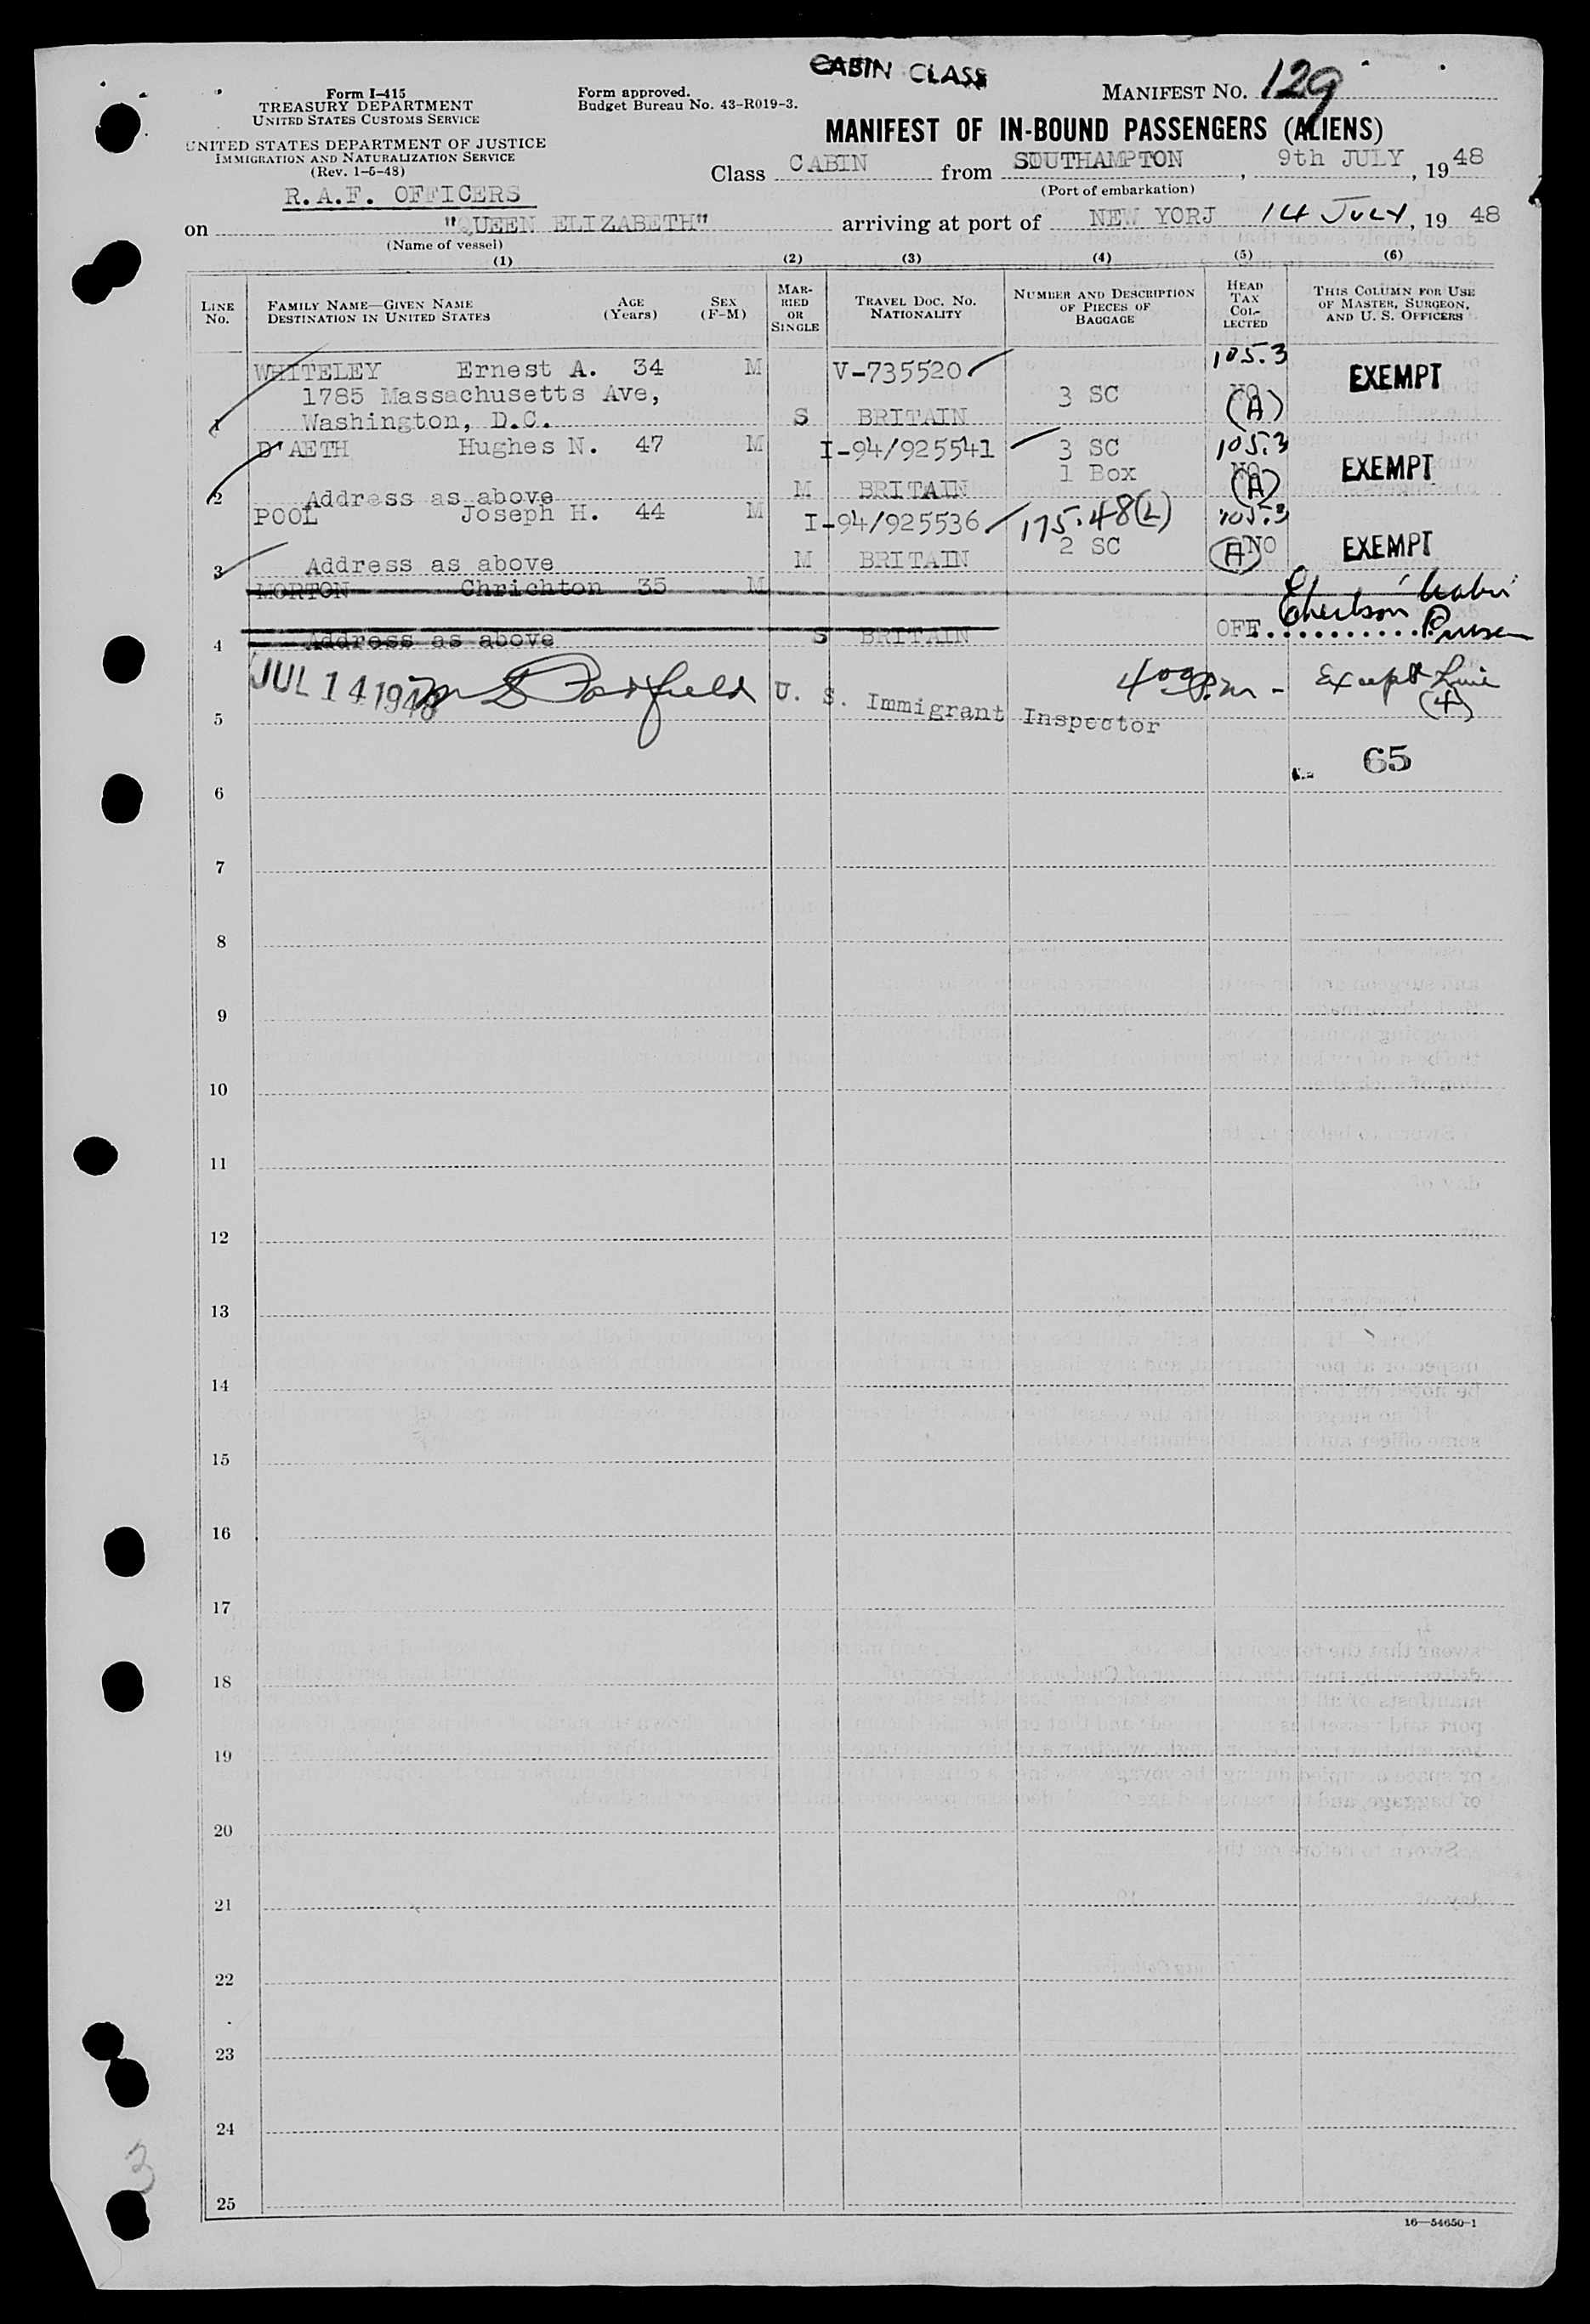 CABIN CLASS
Form I-415
TREASURY DEPARTMENT
UNITED STATES CUSTOMS SERVICE
UNITED STATES DEPARTMENT OF JUSTICE
IMMIGRATION AND NATURALIZATION SERVICE
(Rev. 1-6-48)
Form approved.
Budget Bureau No. 43-R019-3.
MANIFEST NO. 129
MANIFEST OF IN-BOUND PASSENGERS (ALIENS)
Class CABIN from SOUTHAMPTON, 9th JULY, 1948
(Port of embarkation)
R.A.F. OFFICERS
on "QUEEN ELIZABETH" arriving at port of NEW YORJ 14 JULY, 19 48
(Name of vessel)
(1) (2) (3) (4) (5) (6)
LINE NO.
FAMILY NAME—GIVEN NAME
DESTINATION IN UNITED STATES
AGE (Years)
SEX (F-M)
MARRIED OR SINGLE
TRAVEL DOC. NO. NATIONALITY
NUMBER AND DESCRIPTION OF PIECES OF BAGGAGE
HEAD TAX COLLECTED
THIS COLUMN FOR USE OF MASTER, SURGEON, AND U. S. OFFICERS
WHITELEY Ernest A. 34 M V-735520 105.3 EXEMPT
1785 Massachusetts Ave, 3 SC NO
1 Washington, D.C. S BRITAIN (A)
D'AETH Hughes N. 47 M I-94/925541 3 SC 105.3
1 Box NO EXEMPT
2 Address as above M BRITAIN (A)
POOL Joseph H. 44 M I-94/925536 175.48(2) 105.3
2 SC NO EXEMPT
3 Address as above M BRITAIN (A)
MORTON Chrichton 35 M
4 Address as above S BRITAIN OFF.
JUL 14 1948 U. S. Immigrant Inspector 4 00 P.m - Except Line (4)
5
65
6
7
8
9
10
11
12
13
14
15
16
17
18
19
20
21
22
23
24
25
3
16—54650-1